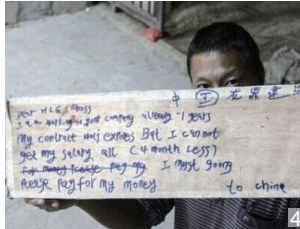 中 工
Dear HLG'S boss
I am working in your company already -1 years
My contract was expires But I can not
get my salary all (4 month Less)
I most going
Please pay for my money
to china
4